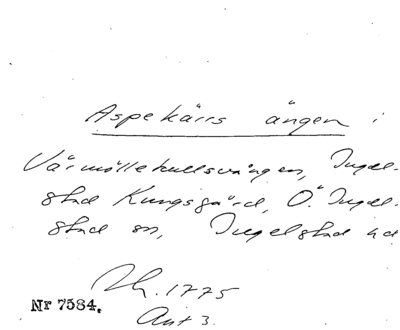 Aspekärrs ängen i
Värmöllekullsvången, Ingel-
stad Kungsgård, Ö. Ingel-
stad sn, Ingelstad hd
Ak. 1775
Nr 7584.
Akt 3.